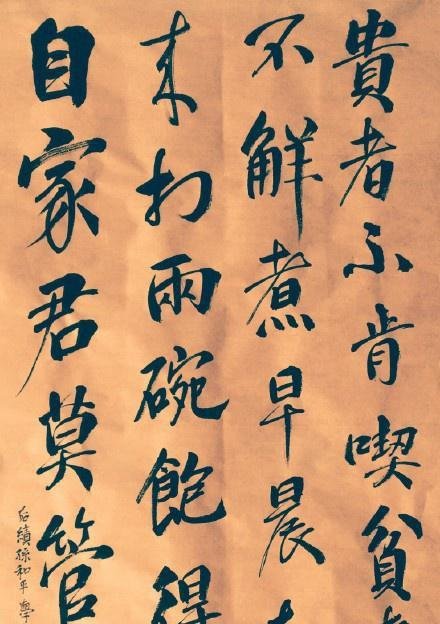 貴者不肯喫貧
不解煮早晨
來打兩碗飽得
自家君莫管
后績孫和平學